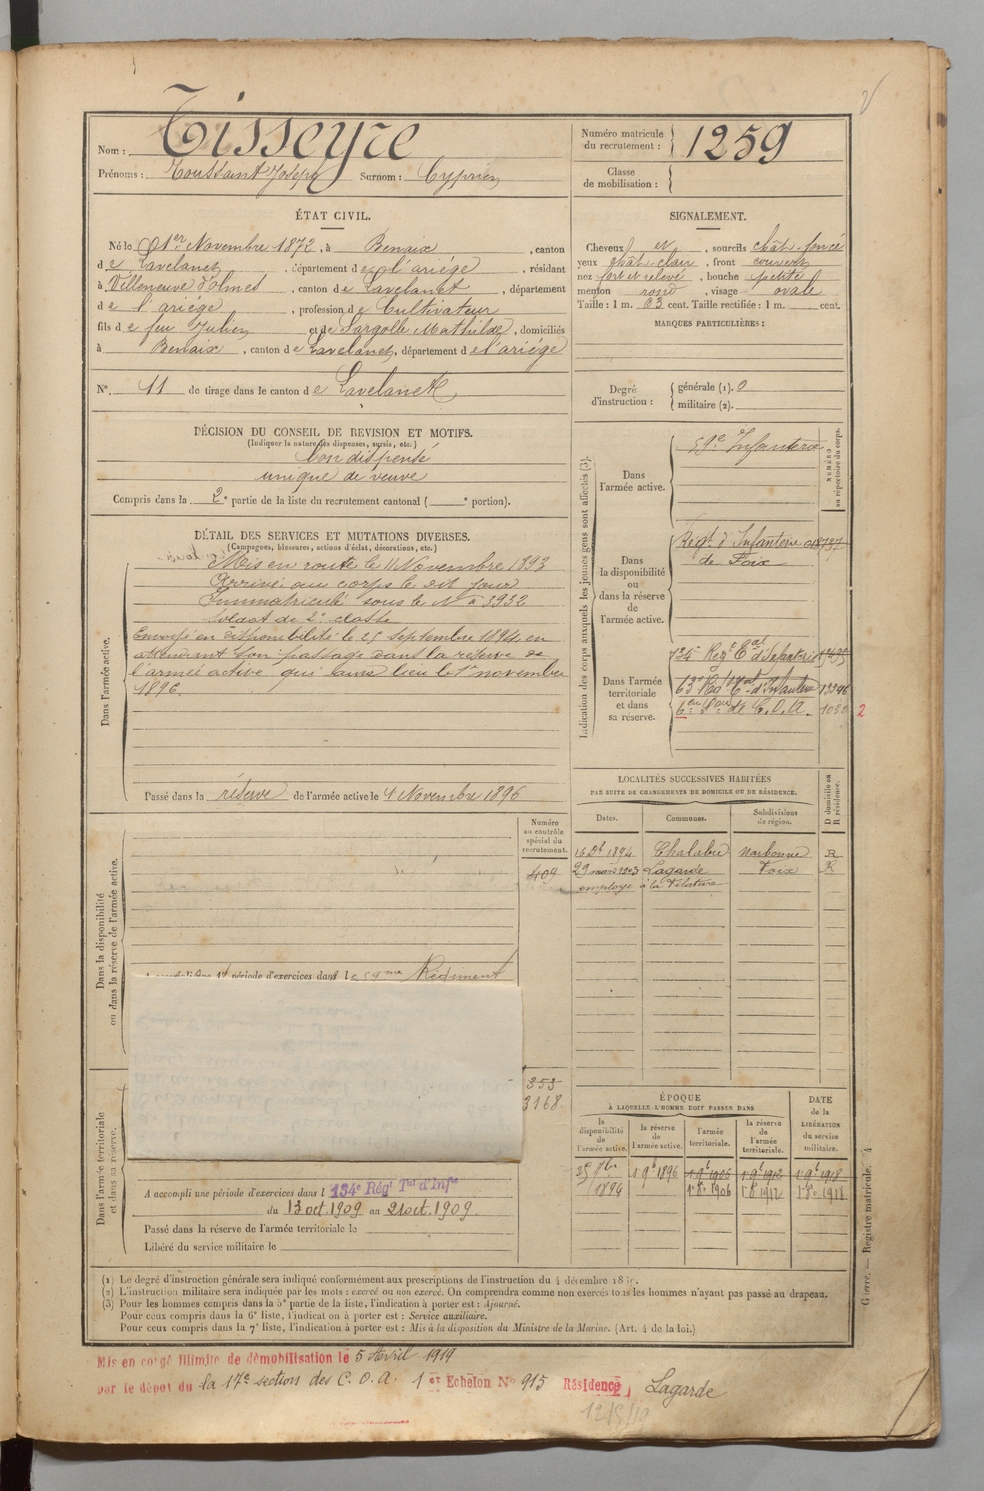 Nom : Tisseyre
Numéro matricule du recrutement : 1259
Prénoms : Toussaint Joseph Surnom : Cyprien
Classe de mobilisation :
ÉTAT CIVIL.
Né le 1er Novembre 1872, à Benaix, canton
de Lavelanet, département de l'ariége, résidant
à Villeneuve d'olmes, canton de Lavelanet, département
de l'ariége, profession de Cultivateur
fils de feu Julien et de Sargolle Mathilde, domiciliés
à Benaix, canton de Lavelanet, département de l'ariége
N° 11 de tirage dans le canton de Lavelanet
SIGNALEMENT.
Cheveux et, sourcils chât. foncé
yeux chât clair, front couvert
nez fort et relevé, bouche petite
menton rond, visage ovale
Taille : 1 m. 63 cent. Taille rectifiée : 1 m. cent.
MARQUES PARTICULIÈRES :
Degré d'instruction : générale (1). 0
militaire (2).
DÉCISION DU CONSEIL DE REVISION ET MOTIFS.
(Indiquer la nature des dispenses, sursis, etc.)
bon dispensé
unique de veuve
Compris dans la 2e partie de la liste du recrutement cantonal ( e portion).
DÉTAIL DES SERVICES ET MUTATIONS DIVERSES.
(Campagnes, blessures, actions d'éclat, décorations, etc.)
Dans l'armée active.
Mis en route le 11 Novembre 1893
Arrivé au corps le dit jour
Immatriculé sous le N° 3932
Soldat de 2e classe
Envoyé en disponibilité le 25 septembre 1894 en
attendant son passage dans la réserve de
l'armée active qui aura lieu le 1er november
1896.
Passé dans la réserve de l'armée active le 1 Novembre 1896
Indication des corps auxquels les jeunes gens sont affectés (3).
NUMÉRO au répertoire du corps.
Dans l'armée active.
59e Infanterie
Dans la disponibilité ou dans la réserve de l'armée active.
Régt d'Infanterie
de Foix
Dans l'armée territoriale et dans sa réserve.
134e Régt tal d'Infanterie
de C.O.A. 1030 2
LOCALITÉS SUCCESSIVES HABITÉES
PAR SUITE DE CHANGEMENTS DE DOMICILE OU DE RÉSIDENCE.
Dates. Communes. Subdivisions de région. D domicile ou R résidence.
1894 Chalabre Narbonne R
29 mars 1903 Lagarde Foix R
employé à la filature
Dans la disponibilité ou dans la réserve de l'armée active.
Numéro au contrôle spécial du recrutement.
409
période d'exercices dans le 59me Régiment
353
3168.
Dans l'armée territoriale et dans sa réserve.
A accompli une période d'exercices dans l 134e Régt Tal d'Infie
du 13 oct. 1909 au 21 oct. 1909.
Passé dans la réserve de l'armée territoriale le
Libéré du service militaire le
ÉPOQUE
À LAQUELLE L'HOMME DOIT PASSER DANS
la disponibilité de l'armée active. la réserve de l'armée active. l'armée territoriale. la réserve de l'armée territoriale.
DATE de la LIBÉRATION du service militaire.
25 7bre 1894 1 9bre 1896 1 9bre 1906 1 9bre 1912 1 9bre 1918
1906 1912 1918
(1) Le degré d'instruction générale sera indiqué conformément aux prescriptions de l'instruction du 4 décembre
(2) L'instruction militaire sera indiquée par les mots : exercé ou non exercé. On comprendra comme non exercés tous les hommes n'ayant pas passé au drapeau.
(3) Pour les hommes compris dans la 5e partie de la liste, l'indication à porter est : Ajourné.
Pour ceux compris dans la 6e liste, l'indication à porter est : Service auxiliaire.
Pour ceux compris dans la 7e liste, l'indication à porter est : Mis à la disposition du Ministre de la Marine. (Art. 4 de la loi.)
Guerre. — Registre matricule. 4
Mis en congé illimité de démobilisation le 5 Avril 1919
par le dépôt du la 17e section des C.O.A. 1er Echelon N° 915 Résidence Lagarde